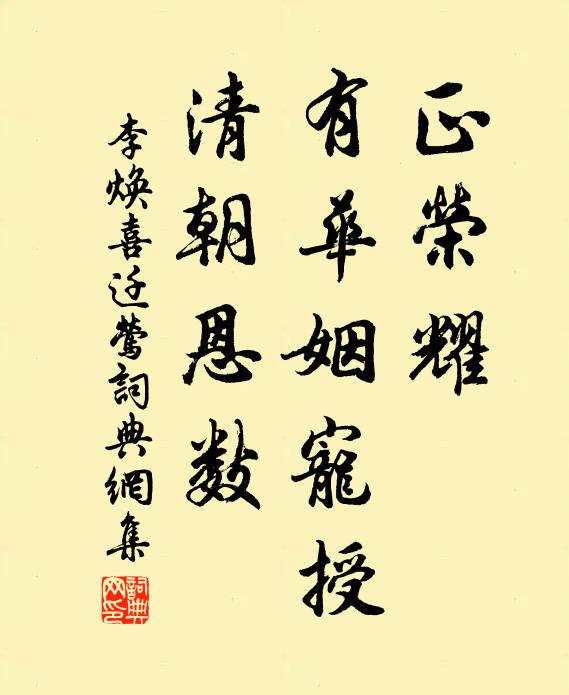 正榮耀
有華姻寵授
清朝恩数
李焕喜迁鶯詞典網集
詞典
网印